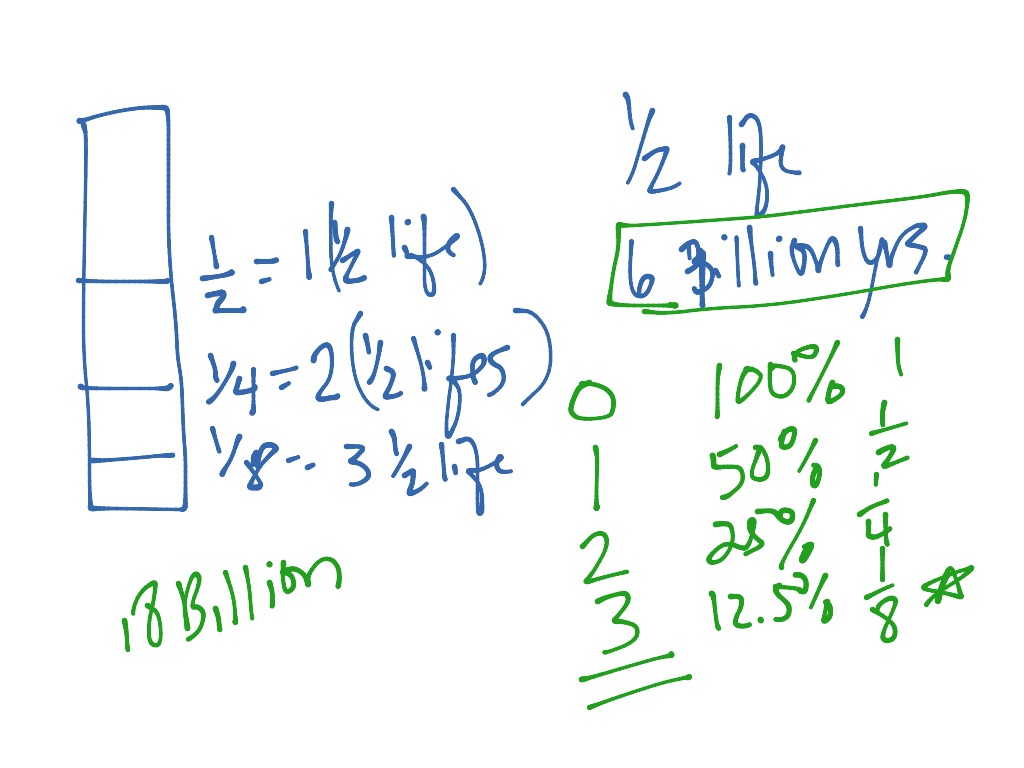 1/2 life
6 Billion yrs.
1/2 = 1(1/2 life)
1/4 = 2(1/2 lifes)
1/8 = 3 1/2 life
0 100% 1
1 50% 1/2
2 25% 1/4
3 12.5% 1/8
18 Billion